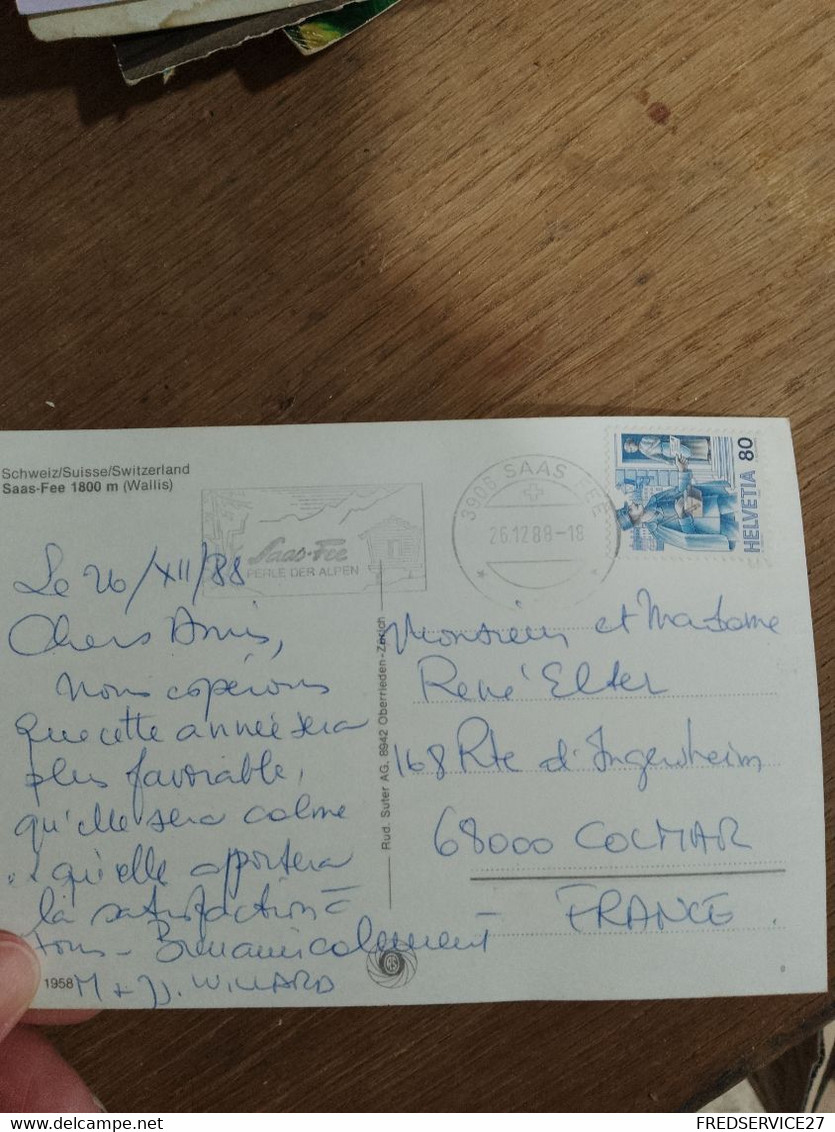 Schweiz/Suisse/Switzerland
Saas-Fee 1800 m (Wallis)
Saas-Fee
PERLE DER ALPEN
3906 SAAS FEE
26.12.88-18
HELVETIA 80
Le 26/XII/88
Chers Amis,
Nous espérons
que cette année sera
plus favorable,
qu'elle sera calme
qu'elle apportera
la satisfaction à
tous - Bien amicalement
M + JJ. WILLARD
Rud. Suter AG, 8942 Oberrieden-Zürich
Monsieur et Madame
René Elter
168 Rte d'Ingersheim
68000 COLMAR
FRANCE
1958
FREDSERVICE27